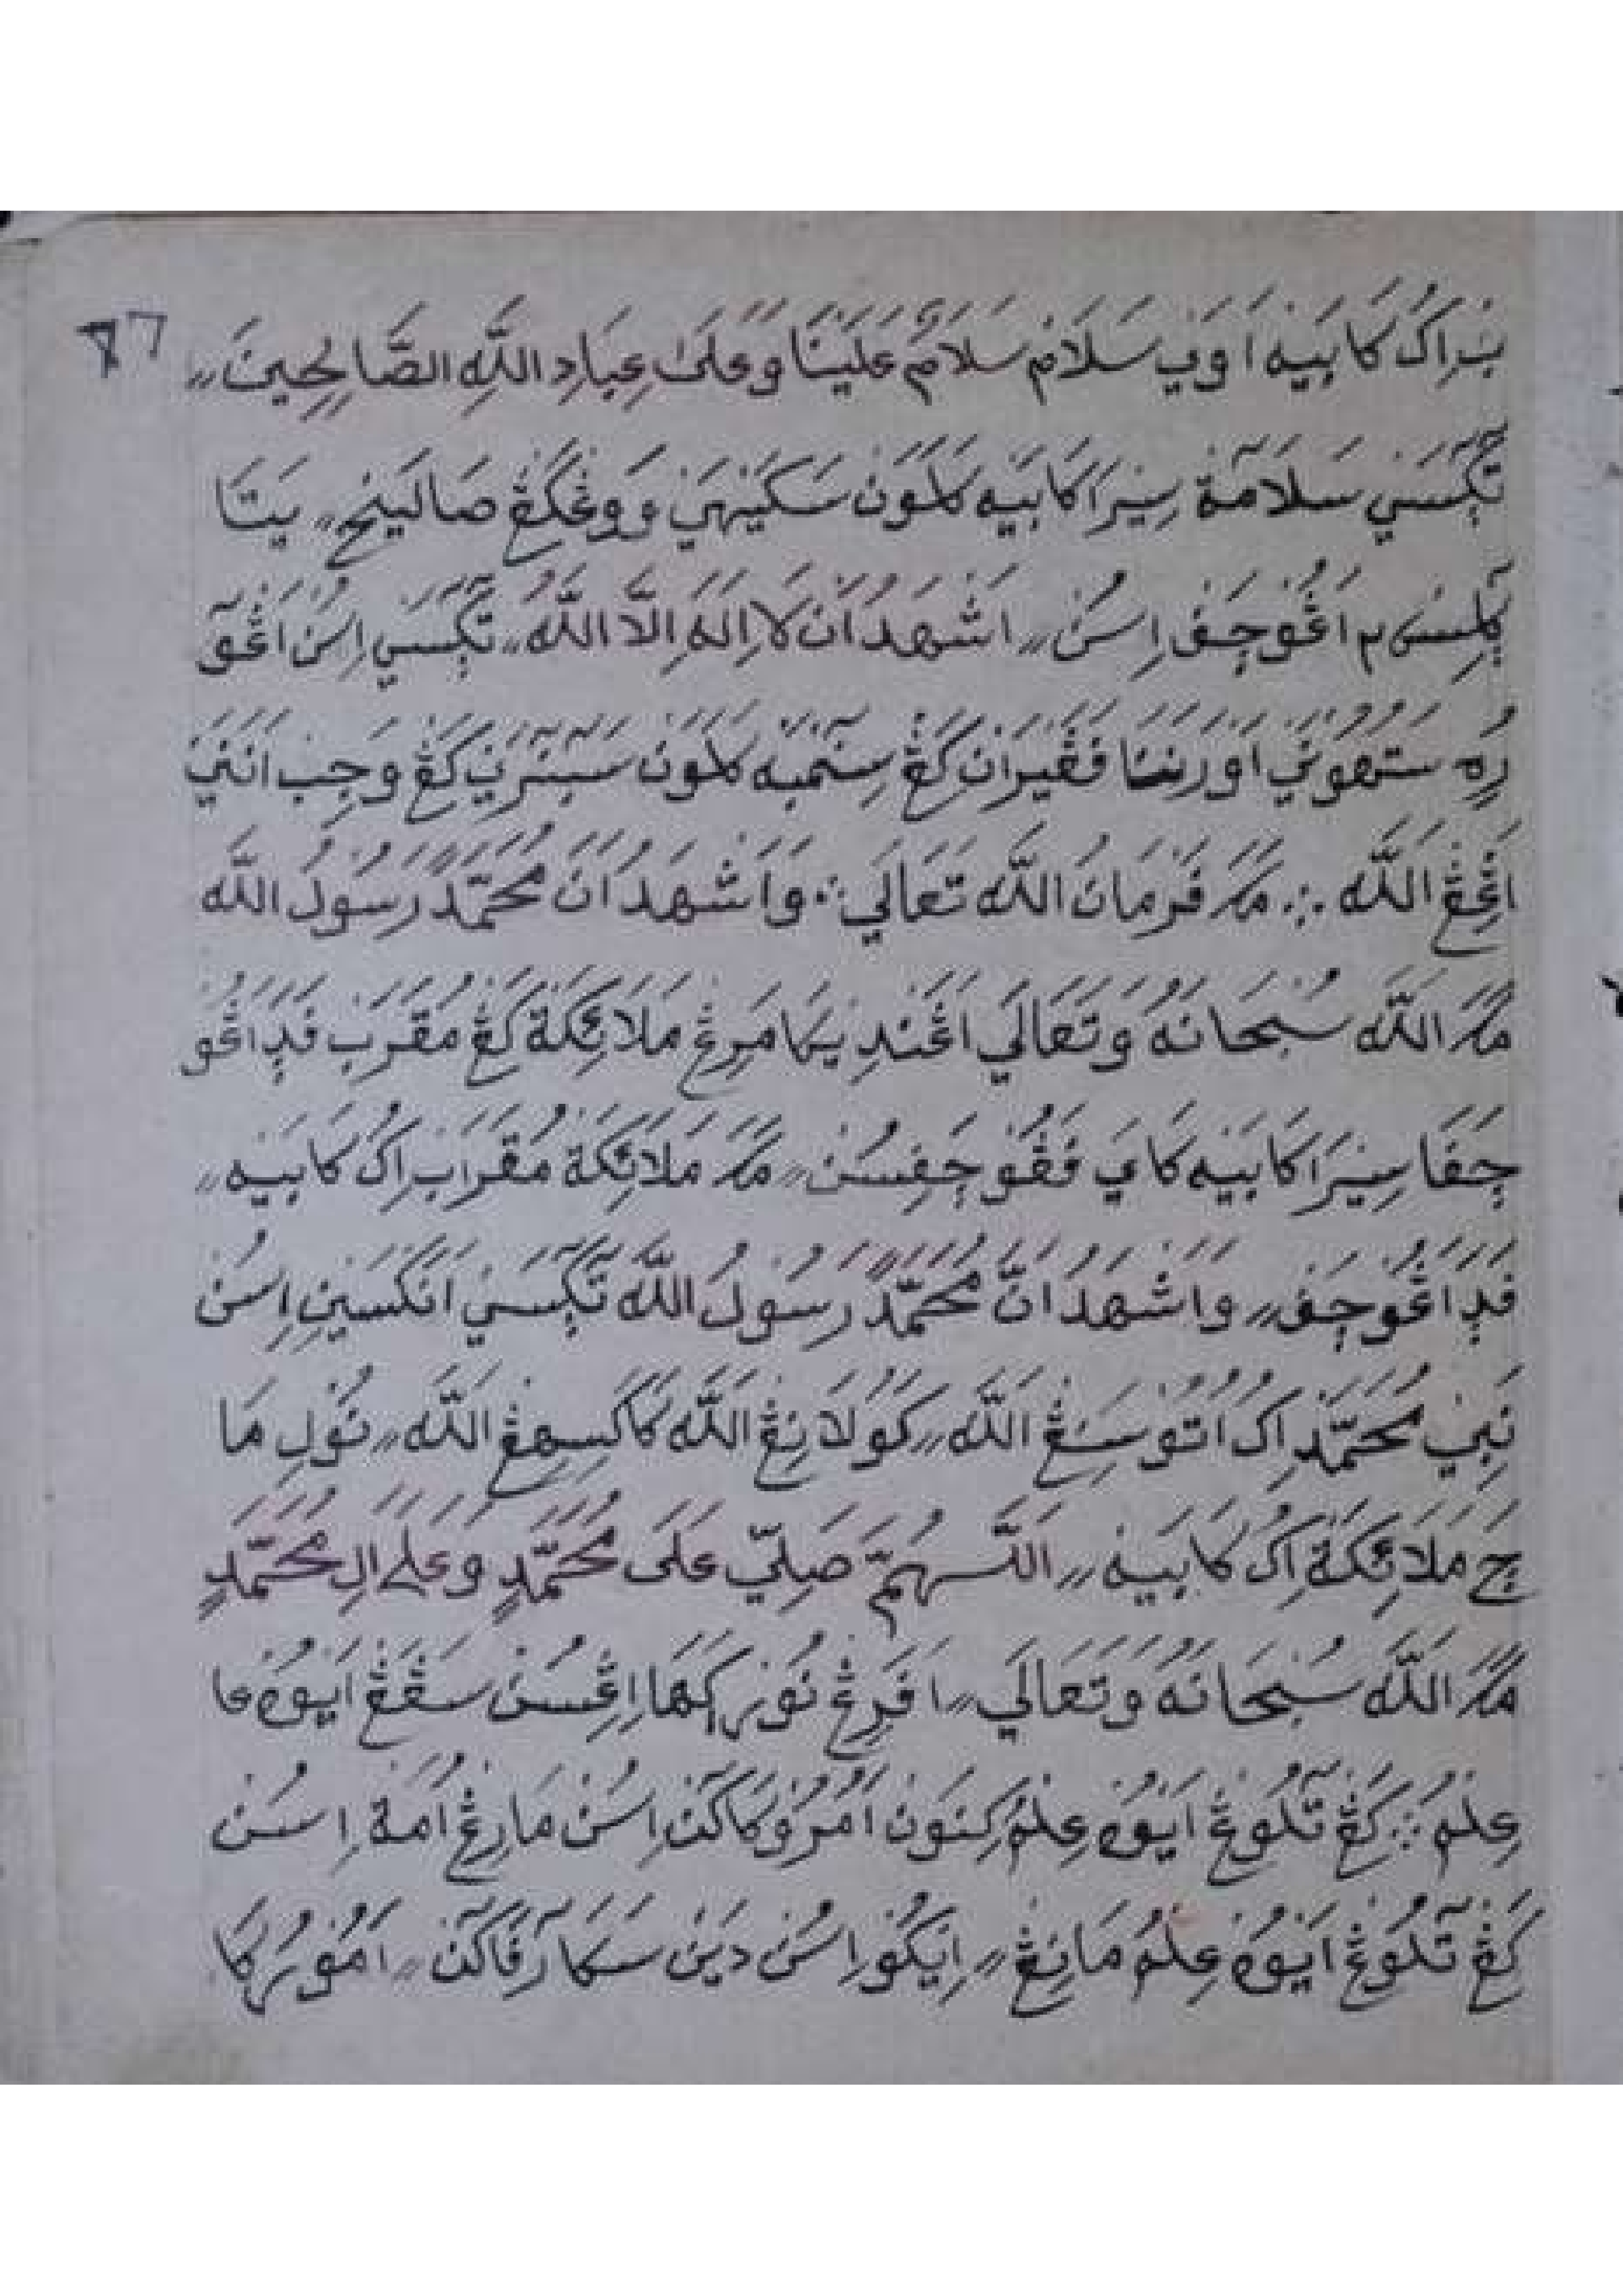 ٨٦
نبراك كابيه اوي سلام سَلَامٌ عَلَيْنَا وَعَلَى عِبَادِ اللهِ الصَّالِحِينَ
تڮسي سلامة سيرا كابيه كلاون سكيهي ووڠكڠ صاليح يتا
اڠوچف اسن اَشْهَدُ اَنْ لَا اِلٰهَ اِلَّا الله تڮسي اسن اڠو
ره ستهوني اورنا ڤڠيران كڠ سنمبه كلاون سبنري كڠ وجب انني
اڠڠ الله مڮ فرمان الله تعالي وَاَشْهَدُ اَنَّ مُحَمَّدً رَسُولُ الله
مڮ الله سُبْحَانَهُ وَتَعَالَي اڠنديكا مرڠ ملائكة كڠ مقرب ڤدا اڠو
چڤا سيرا كابيه كاي ڤڠوچڤسن مڮ ملائكة مقراب اك كابيه
ڤدا اڠوچڤ وَاَشْهَدُ اَنَّ مُحَمَّدً رَسُولُ الله تڮسي انكسيني اسن
نبي محمد اك اتوسڠ الله كولانڠ الله كاكسهڠ الله نولي ما
چ ملائكة اك كابيه اَللّٰهُمَّ صَلِّي عَلَى مُحَمَّدٍ وَعَلَى اٰلِ مُحَمَّدٍ
مڮ الله سُبْحَانَهُ وَتَعَالَي اڤرڠ نور اڠسن سڠڠ ايوه
علم كڠ تلوڠ ايوه علم كنون امروكاكن اسن مارڠ امة اسن
كڠ تلوڠ ايوه علم مانڠ ايكو اسن دين سكارڤاكن امورڮا